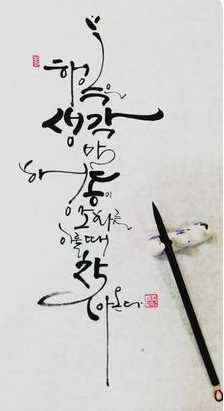 행
복은
생각
말
행동이
조화를
이룰때
찾
아온다